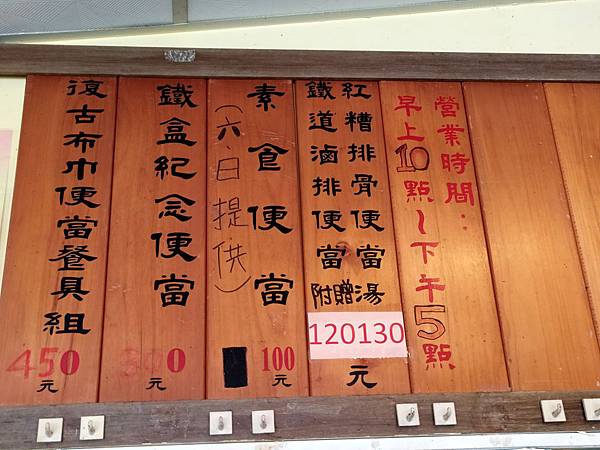 營業時間：
早上10點～下午5點
紅糟排骨便當
鐵道滷排便當
附贈湯
120130
元
素食便當
（六、日提供）
100
元
鐵盒紀念便當
元
復古布巾便當餐具組
450
元